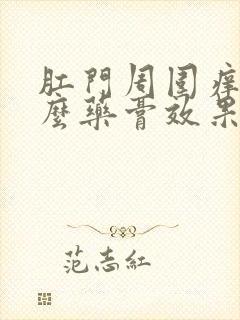 肛門周圍痒
麼藥膏效果
范志紅